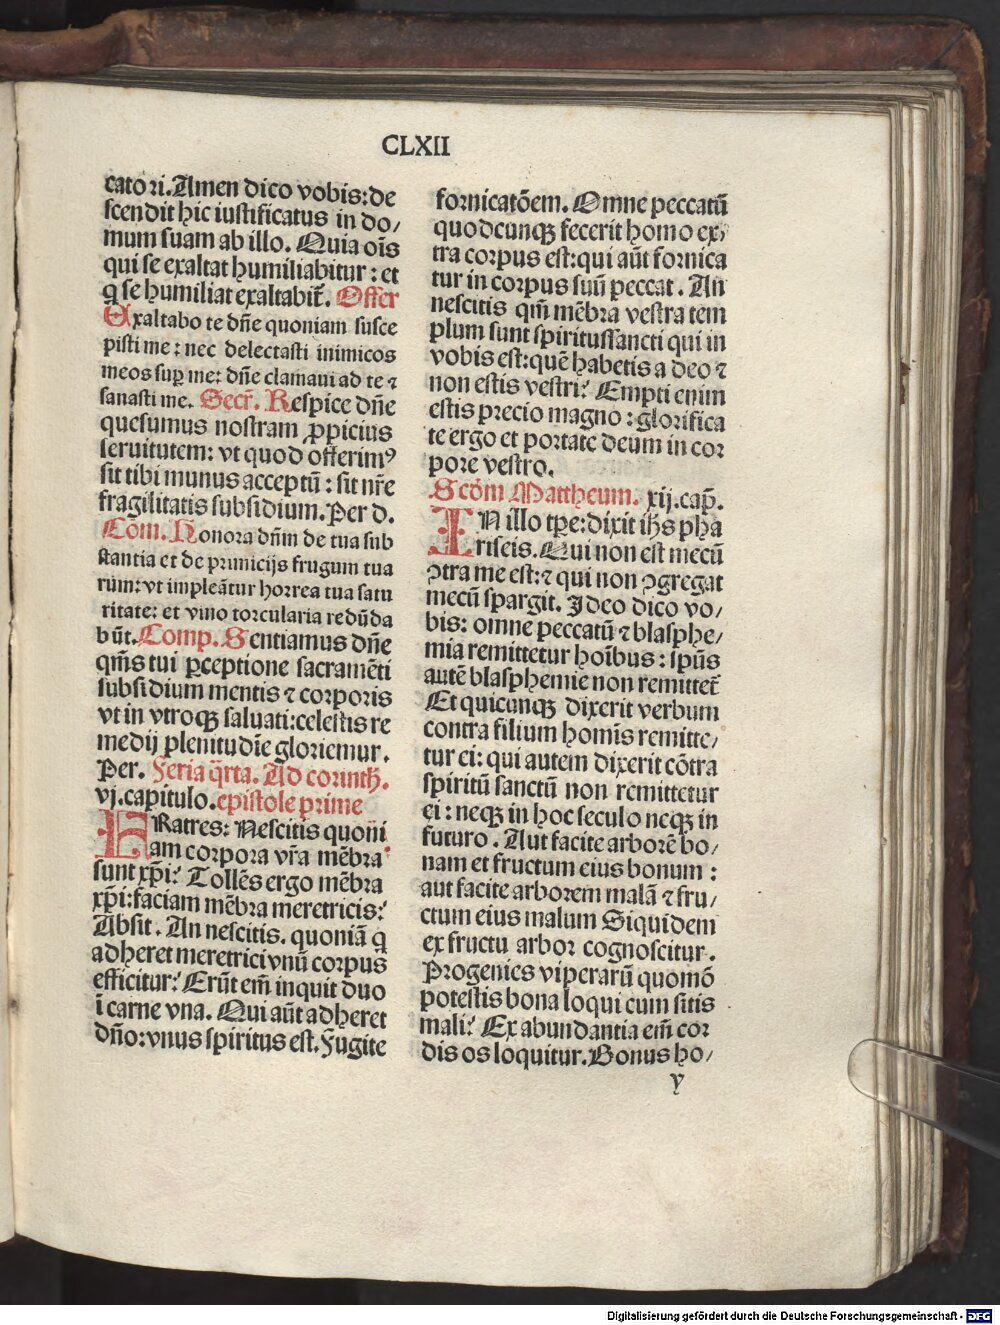 CLXII
catori. Amen dico vobis: de
scendit hic iustificatus in do/
mum suam ab illo. Quia oīs
qui se exaltat humiliabitur: et
q̄ se humiliat exaltabit̄. Offer
Exaltabo te dn̄e quoniam susce
pisti me: nec delectasti inimicos
meos suꝑ me: dn̄e clamaui ad te ⁊
sanasti me. Secr̄. Respice dn̄e
quesumus nostram ꝓpicius
seruitutem: vt quod offerimꝰ
sit tibi munus acceptū: sit nr̄e
fragilitatis subsidium. Per d.
Cōm. Honora dn̄m de tua sub
stantia et de primicijs frugum tua
rum: vt impleātur horrea tua satu
ritate: et vino torcularia redūda
būt. Comp. Sentiamus dn̄e
qm̄s tui ꝑceptione sacramēti
subsidium mentis ⁊ corporis
vt in vtroqꝫ saluati: celestis re
medij plenitudīe gloriemur.
Per. Feria q̄rta. Ad corinth.
vj. capitulo. epistole prime
FRatres: Nescitis quoni
am corpora vr̄a mēbra
sunt xp̄i? Tollēs ergo mēbra
xp̄i: faciam mēbra meretricis?
Absit. An nescitis. quoniā q̄
adheret meretrici vnū corpus
efficitur? Erūt em̄ inquit duo
ī carne vna. Qui aūt adheret
dn̄o: vnus spiritus est. Fugite
fornicatōem. Omne peccatū
quodcunqꝫ fecerit homo ex/
tra corpus est: qui aūt fornica
tur in corpus suū peccat. An
nescitis qm̄ mēbra vestra tem
plum sunt spiritussancti qui in
vobis est: quē habetis a deo ⁊
non estis vestri? Empti enim
estis precio magno: glorifica
te ergo et portate deum in cor
pore vestro.
Scd̄m Mattheum. xij. cap̄.
IN illo tp̄e: dixit ih̄s pha
riseis. Qui non est mecū
ꝯtra me est: ⁊ qui non ꝯgregat
mecū spargit. Ideo dico vo/
bis: omne peccatū ⁊ blasphe/
mia remittetur hoībus: sp̄us
autē blasphemie non remittet̄
Et quicunqꝫ dixerit verbum
contra filium homīs remitte/
tur ei: qui autem dixerit cōtra
spiritū sanctū non remittetur
ei: neqꝫ in hoc seculo neqꝫ in
futuro. Aut facite arborē bo/
nam et fructum eius bonum:
aut facite arborem malā ⁊ fru/
ctum eius malum Siquidem
ex fructu arbor cognoscitur.
Progenies viperarū quomō
potestis bona loqui cum sitis
mali? Ex abundantia em̄ cor
dis os loquitur. Bonus ho/
y
Digitalisierung gefördert durch die Deutsche Forschungsgemeinschaft - DFG